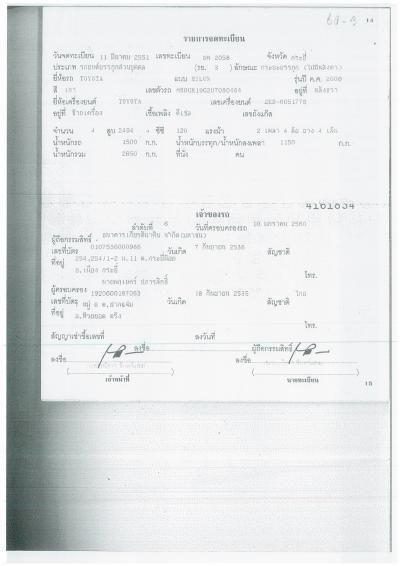 60-3 14
รายการจดทะเบียน
วันจดทะเบียน 11 มีนาคม 2551 เลขทะเบียน 2058 จังหวัด กระบี่
ประเภท รถยนต์บรรทุกส่วนบุคคล (รย. 3 ) ลักษณะ กระบะบรรทุก (ไม่มีหลังคา)
ยี่ห้อรถ TOYOTA แบบ HILUX รุ่นปี ค.ศ. 2008
สี เทา เลขตัวรถ อยู่ที่
ยี่ห้อเครื่องยนต์ TOYOTA เลขเครื่องยนต์ 2KD-6051778
อยู่ที่ เชื้อเพลิง ดีเซล เลขถังแก๊ส
จำนวน 4 สูบ 2494 ซีซี 120 แรงม้า 2 เพลา 4 ล้อ ยาง 4 เส้น
น้ำหนักรถ 1500 ก.ก. น้ำหนักบรรทุก/น้ำหนักลงเพลา 1150 ก.ก.
น้ำหนักรวม 2650 ก.ก. ที่นั่ง คน
4161634
เจ้าของรถ
ลำดับที่ 6 วันที่ครอบครองรถ 10 มกราคม 2560
ผู้ถือกรรมสิทธิ์ ธนาคารเกียรตินาคิน จำกัด (มหาชน)
เลขที่บัตร 0107536000986 วันเกิด 7 กันยายน 2536 สัญชาติ
ที่อยู่ 254,254/1-2 ม.11 ต.กระบี่น้อย
อ.เมือง กระบี่ โทร.
ผู้ครอบครอง
เลขที่บัตร 1920600187063 วันเกิด 18 กันยายน 2535 สัญชาติ ไทย
ที่อยู่ หมู่ 6
อ.ห้วยยอด ตรัง
โทร.
สัญญาเช่าซื้อเลขที่ ลงวันที่
ลงชื่อ ผู้ถือกรรมสิทธิ์
ลงชื่อ ลงชื่อ
เจ้าหน้าที่ นายทะเบียน
15